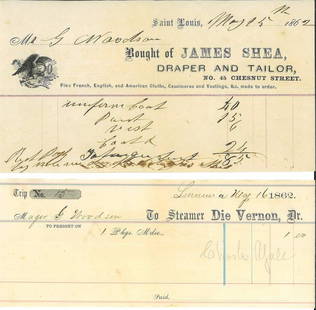 Saint Louis, May 25th 1862
Mr G Woodson
Bought of JAMES SHEA,
DRAPER AND TAILOR,
NO. 45 CHESNUT STREET.
Fine French, English, and American Cloths, Cassimeres and Vestings, &c. made to order.
uniform Coat 40
Pant 15
Vest 6
24
85
Trip No. 15
May 16 1862.
Major G Woodson To Steamer Die Vernon, Dr.
TO FREIGHT ON
1 Pkge Mdse
Paid,